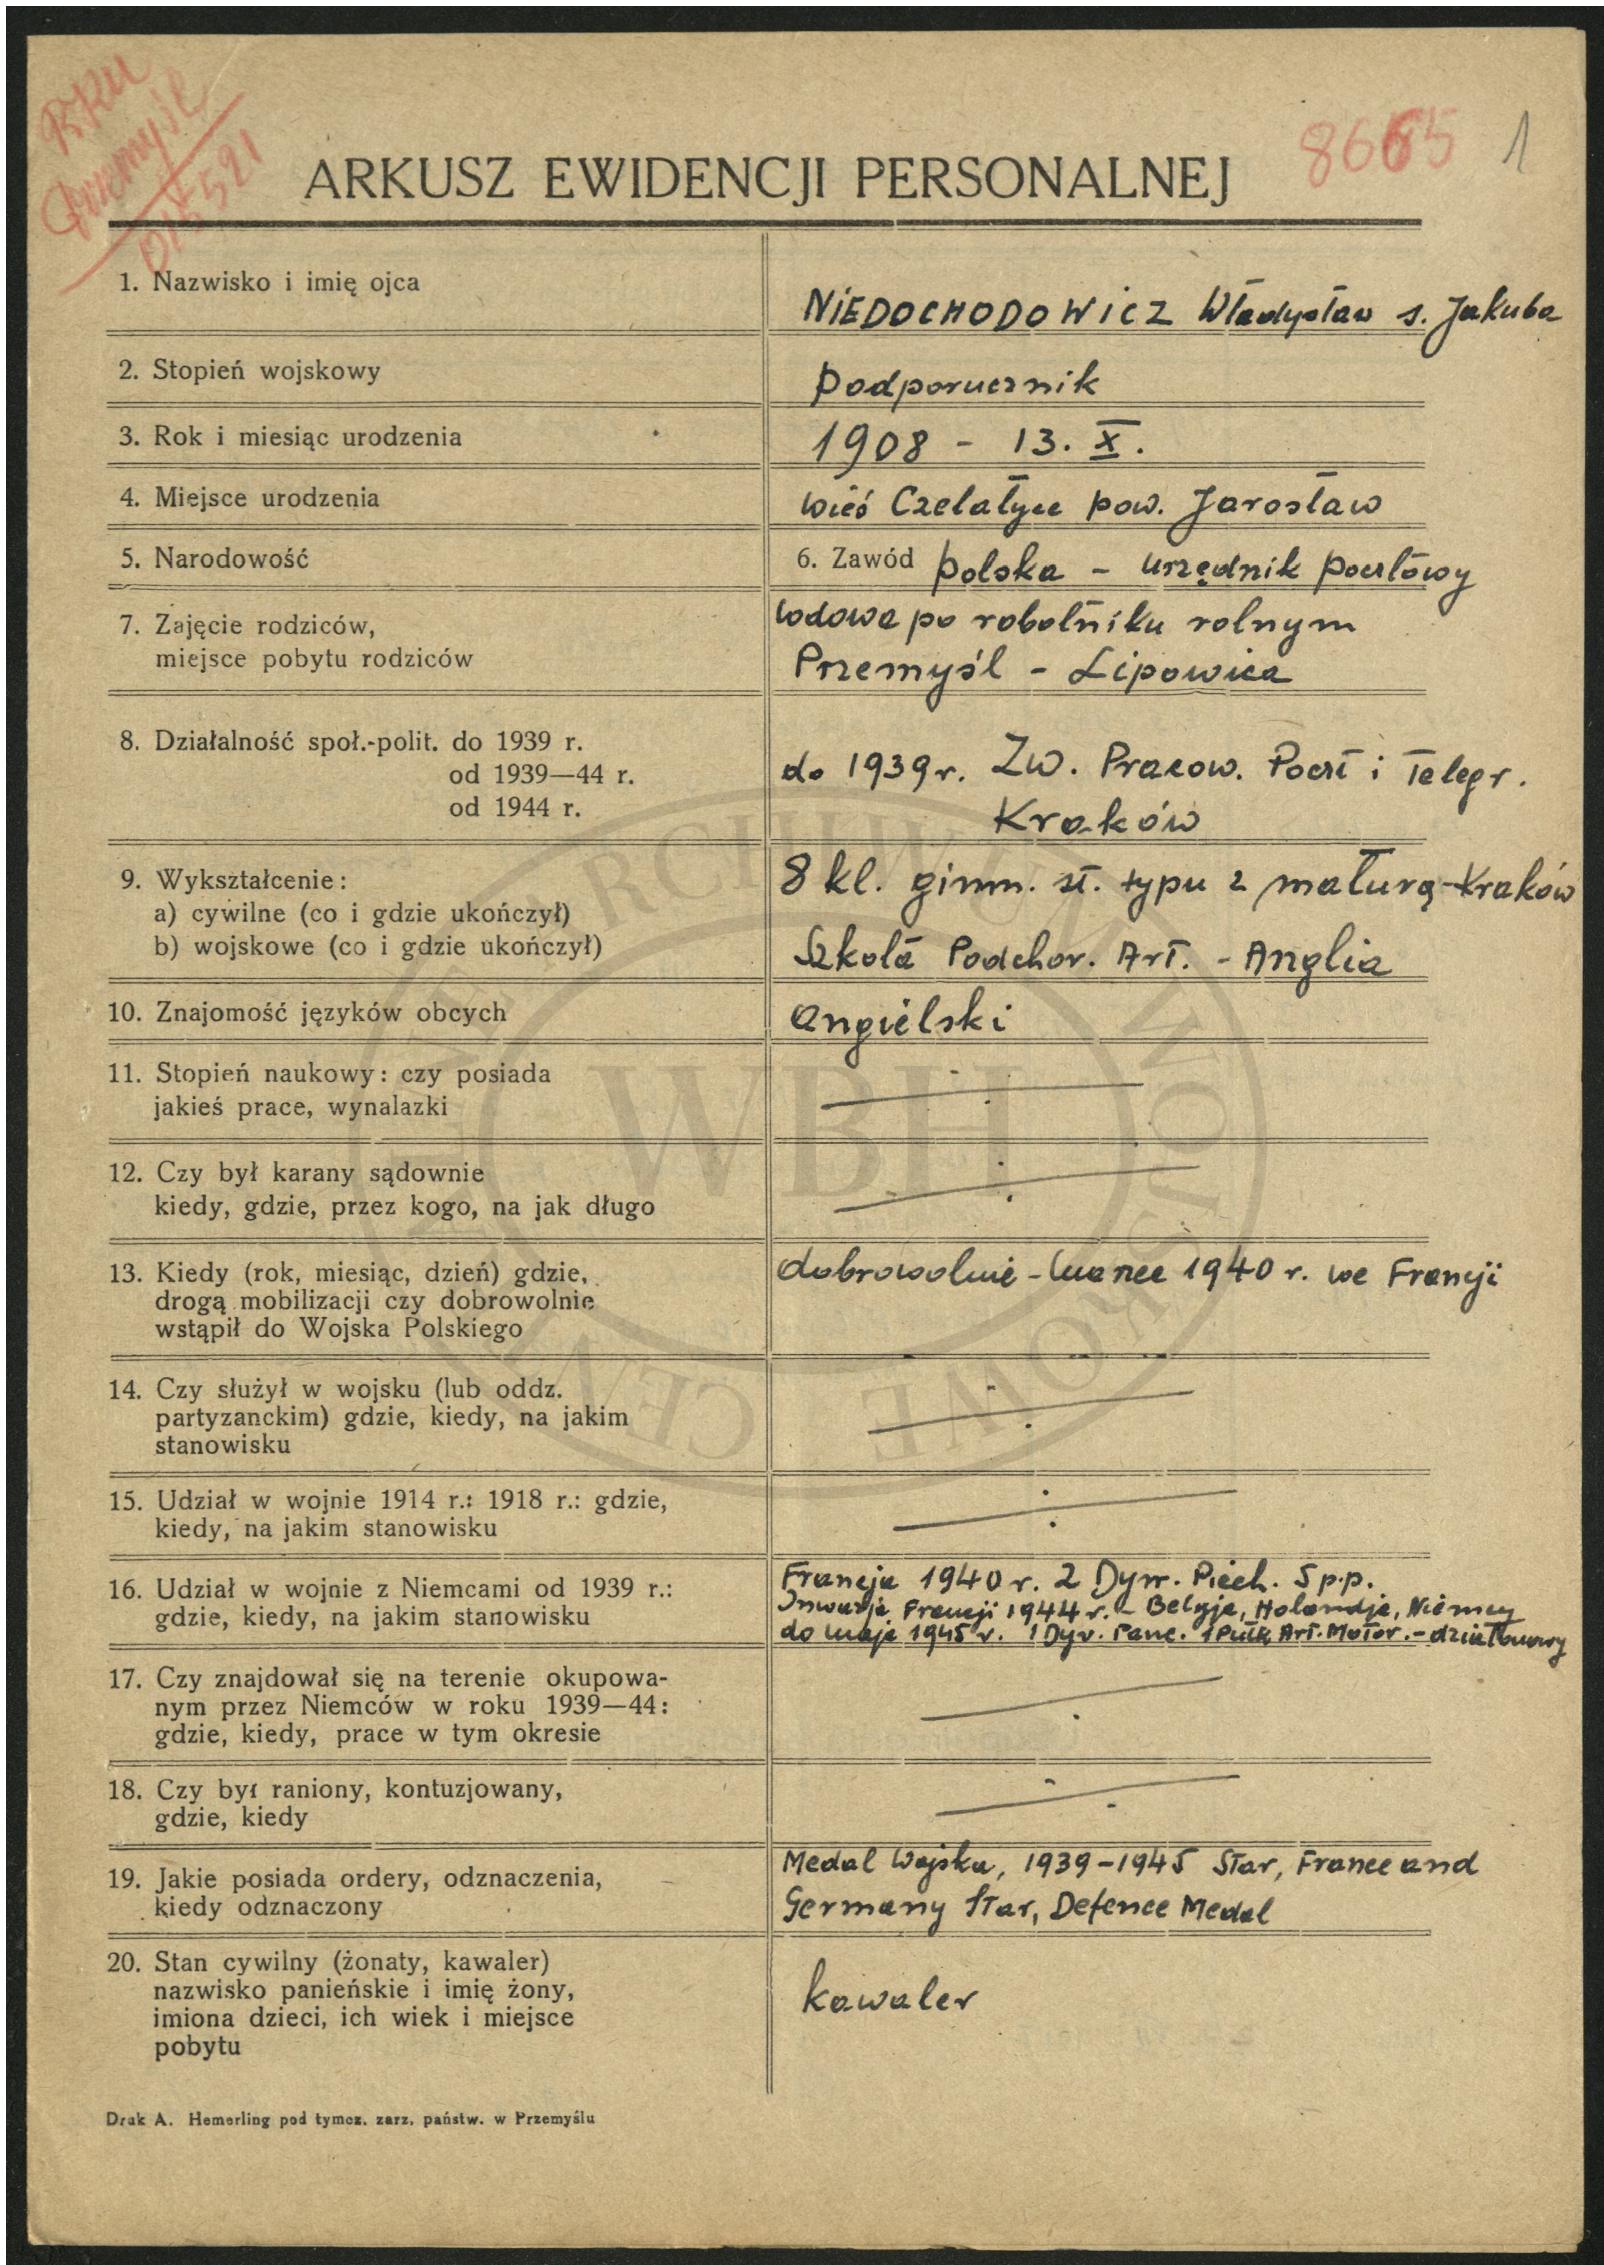 RKU
Przemyśl
8665
1
ARKUSZ EWIDENCJI PERSONALNEJ
1. Nazwisko i imię ojca
NIEDOCHODOWICZ Władysław s. Jakuba
2. Stopień wojskowy
podporucznik
3. Rok i miesiąc urodzenia
1908 - 13. X.
4. Miejsce urodzenia
wieś Czelatyce pow. Jarosław
5. Narodowość
6. Zawód polska - urzędnik pocztowy
7. Zajęcie rodziców,
miejsce pobytu rodziców
wdowa po robotniku rolnym
Przemyśl - Lipowica
8. Działalność społ.-polit. do 1939 r.
od 1939—44 r.
od 1944 r.
do 1939 r. Zw. Pracow. Poczt i Telegr.
Kraków
9. Wykształcenie:
a) cywilne (co i gdzie ukończył)
b) wojskowe (co i gdzie ukończył)
8 kl. gimn. st. typu z maturą - Kraków
Szkoła Podchor. Art. - Anglia
10. Znajomość języków obcych
angielski
11. Stopień naukowy: czy posiada
jakieś prace, wynalazki
12. Czy był karany sądownie
kiedy, gdzie, przez kogo, na jak długo
13. Kiedy (rok, miesiąc, dzień) gdzie,
drogą mobilizacji czy dobrowolnie
wstąpił do Wojska Polskiego
dobrowolnie - marzec 1940 r. we Francji
14. Czy służył w wojsku (lub oddz.
partyzanckim) gdzie, kiedy, na jakim
stanowisku
15. Udział w wojnie 1914 r.: 1918 r.: gdzie,
kiedy, na jakim stanowisku
16. Udział w wojnie z Niemcami od 1939 r.:
gdzie, kiedy, na jakim stanowisku
Francja 1940 r. 2 Dyw. Piech. 5 p.p.
Inwazja Francji 1944 r. - Belgja, Holandja, Niemcy
do maja 1945 r. 1 Dyw. Panc. 1 Pułk Art. Motor. - działonowy
17. Czy znajdował się na terenie okupowa-
nym przez Niemców w roku 1939—44:
gdzie, kiedy, prace w tym okresie
18. Czy był raniony, kontuzjowany,
gdzie, kiedy
19. Jakie posiada ordery, odznaczenia,
kiedy odznaczony
Medal Wojska, 1939-1945 Star, France and
Germany Star, Defence Medal
20. Stan cywilny (żonaty, kawaler)
nazwisko panieńskie i imię żony,
imiona dzieci, ich wiek i miejsce
pobytu
kawaler
Druk A. Hemerling pod tymcz. zarz. państw. w Przemyślu
CENTRALNE ARCHIWUM WOJSKOWE
WBH